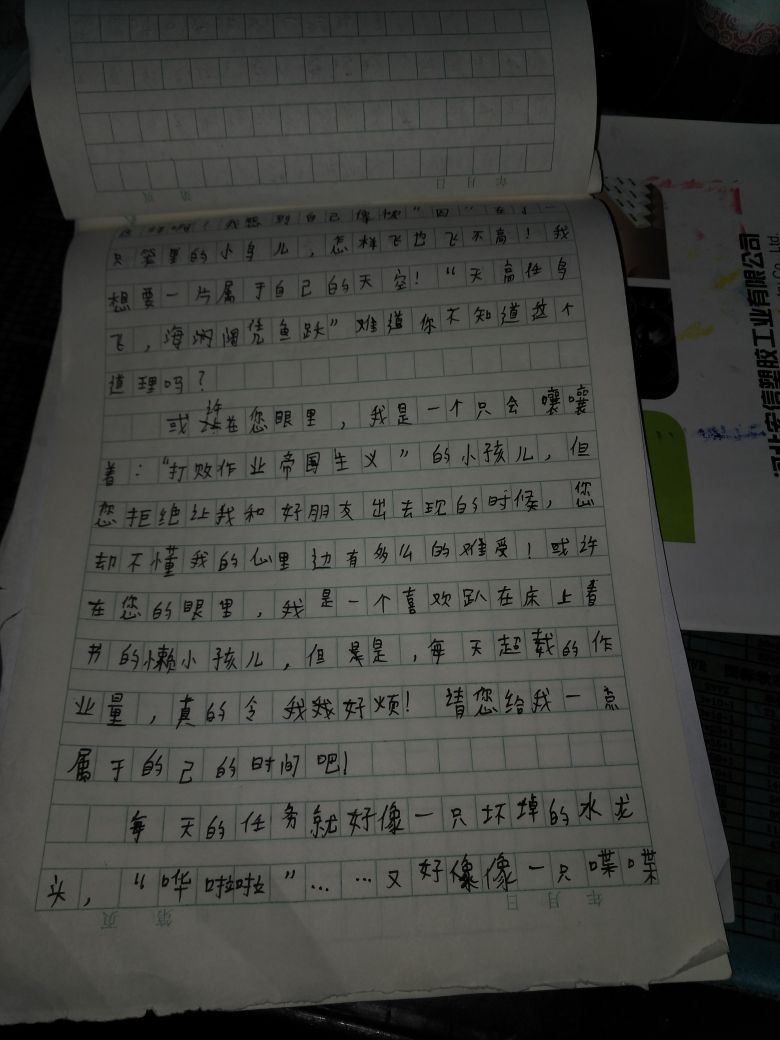 我感到自己像被“囚”在了一
只笼里的小鸟儿，怎样飞也飞不高！我
想要一片属于自己的天空！“天高任鸟
飞，海阔凭鱼跃”难道你不知道这个
道理吗？
或许在您眼里，我是一个只会嚷嚷
着：“打败作业帝国主义”的小孩儿，但
您拒绝让我和好朋友出去玩的时候，您
却不懂我的心里边有多么的难受！或许
在您的眼里，我是一个喜欢趴在床上看
书的懒小孩儿，但是，每天超载的作
业量，真的令我好烦！请您给我一点
属于的己的时间吧！
每天的任务就好像一只坏掉的水龙
头，“哗啦啦”……又好像一只喋喋
年 月 日
第 页
年 月 日
第 页
河北安信塑胶工业有限公司
Co., Ltd.